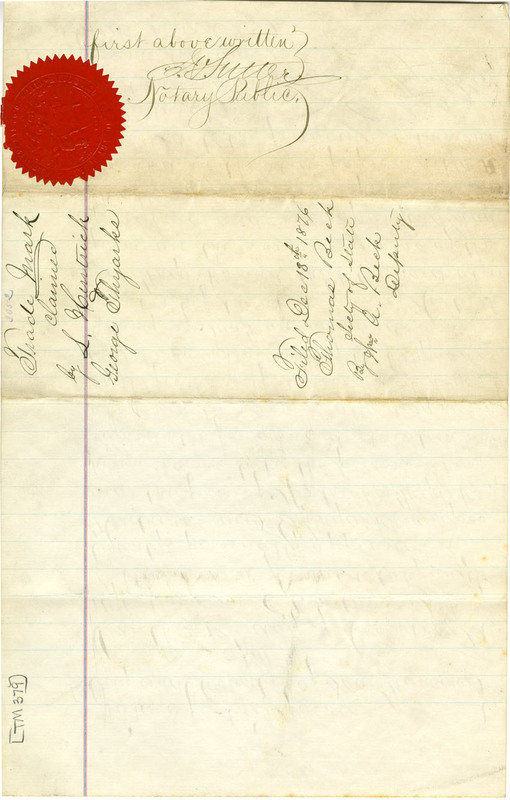 first above written
Notary Public.
Trade Mark
claimed
by L. Heinrich
George Thyarks
Filed Dec 18th 1876
Thomas Beck
Secty of State
By Wm A. Beck
Deputy
TM 379